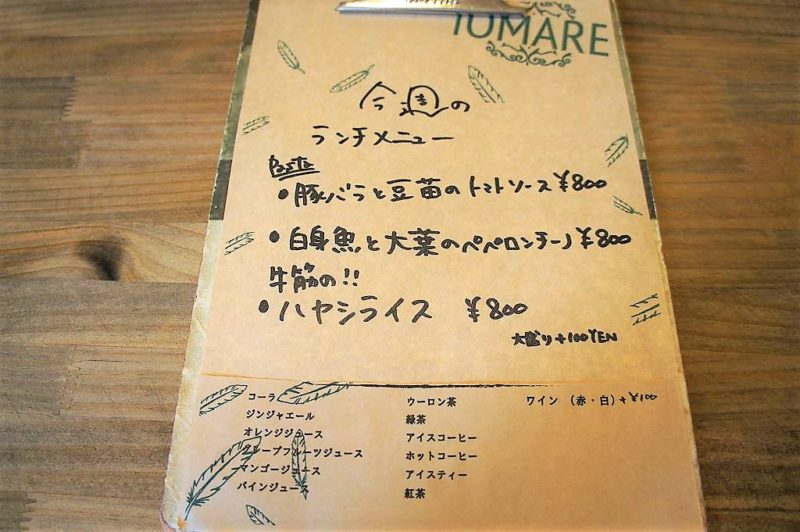 TOMARE
今週の
ランチメニュー
Pasta
・豚バラと豆苗のトマトソース ¥800
・白身魚と大葉のペペロンチーノ ¥800
牛筋の!!
・ハヤシライス ¥800
大盛り+100YEN
コーラ
ジンジャエール
オレンジジュース
グレープフルーツジュース
マンゴージュース
パインジュース
ウーロン茶
緑茶
アイスコーヒー
ホットコーヒー
アイスティー
紅茶
ワイン (赤・白)+¥100